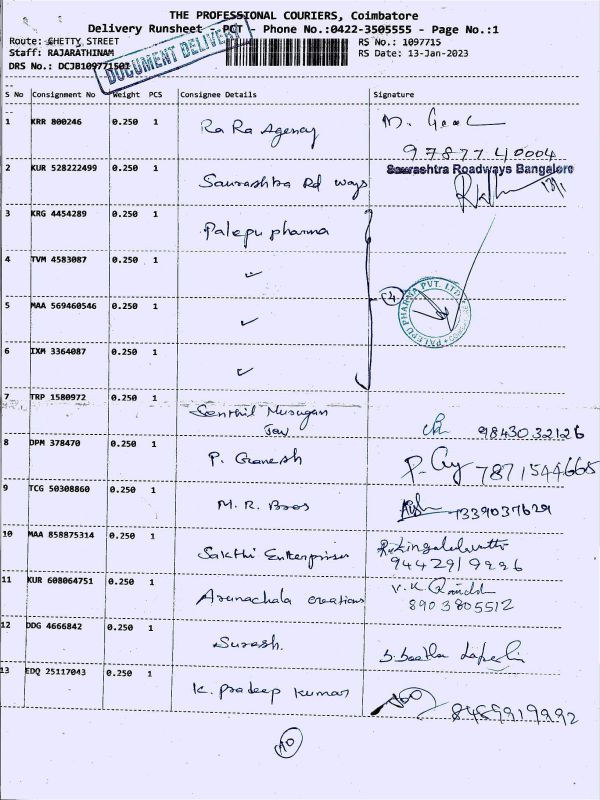 THE PROFESSIONAL COURIERS, Coimbatore
Delivery Runsheet - PCT - Phone No.:0422-3505555 - Page No.:1
Route: GHETTY STREET
RS No.: 1097715
Staff: RAJARATHINAM
RS Date: 13-Jan-2023
DRS No.: DCJB109771502
DOCUMENT DELIVERY
S No Consignment No Weight PCS Consignee Details Signature
1 KRR 800246 0.250 1 Ra Ra Agency
97877 40004
2 KUR 528222499 0.250 1 Saurashtra Rd ways
Saurashtra Roadways Bangalore
13/1
3 KRG 4454289 0.250 1 Palepu pharma
4 TVM 4583087 0.250 1 ✓
4
PALEPU PHARMA PVT. LTD.
5 MAA 569460546 0.250 1 ✓
6 IXM 3364087 0.250 1 ✓
7 TRP 1580972 0.250 1 Senthil Murugan
9843032126
8 DPM 378470 0.250 1 P. Ganesh
7871544665
9 TCG 50308860 0.250 1 M. R. Boos
7339037629
10 MAA 858875314 0.250 1 Sakthi Enterprises
9442919226
11 KUR 608064751 0.250 1 Arunachala creations
8903805512
12 DDG 4666842 0.250 1 Suresh.
13 EDQ 25117043 0.250 1 K. Pradeep Kumar
8489919992
10